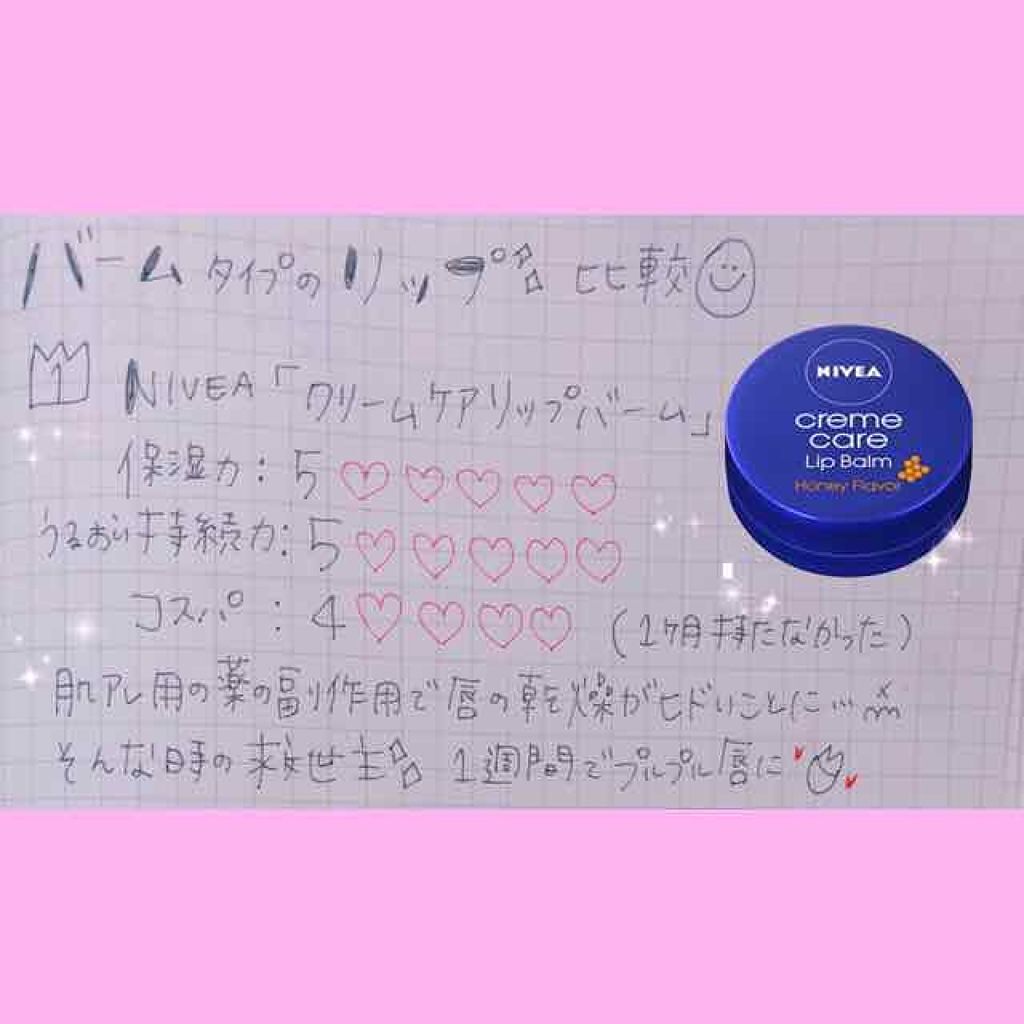 バームタイプのリップ比較
1 NIVEA「クリームケアリップバーム」
保湿力：5
うるおい持続力：5
コスパ：4 (1ヶ月持たなかった)
肌アレ用の薬の副作用で唇の乾燥がヒドいことに…
そんな時の救世主 1週間でプルプル唇に
NIVEA
creme
care
Lip Balm
Honey Flavor